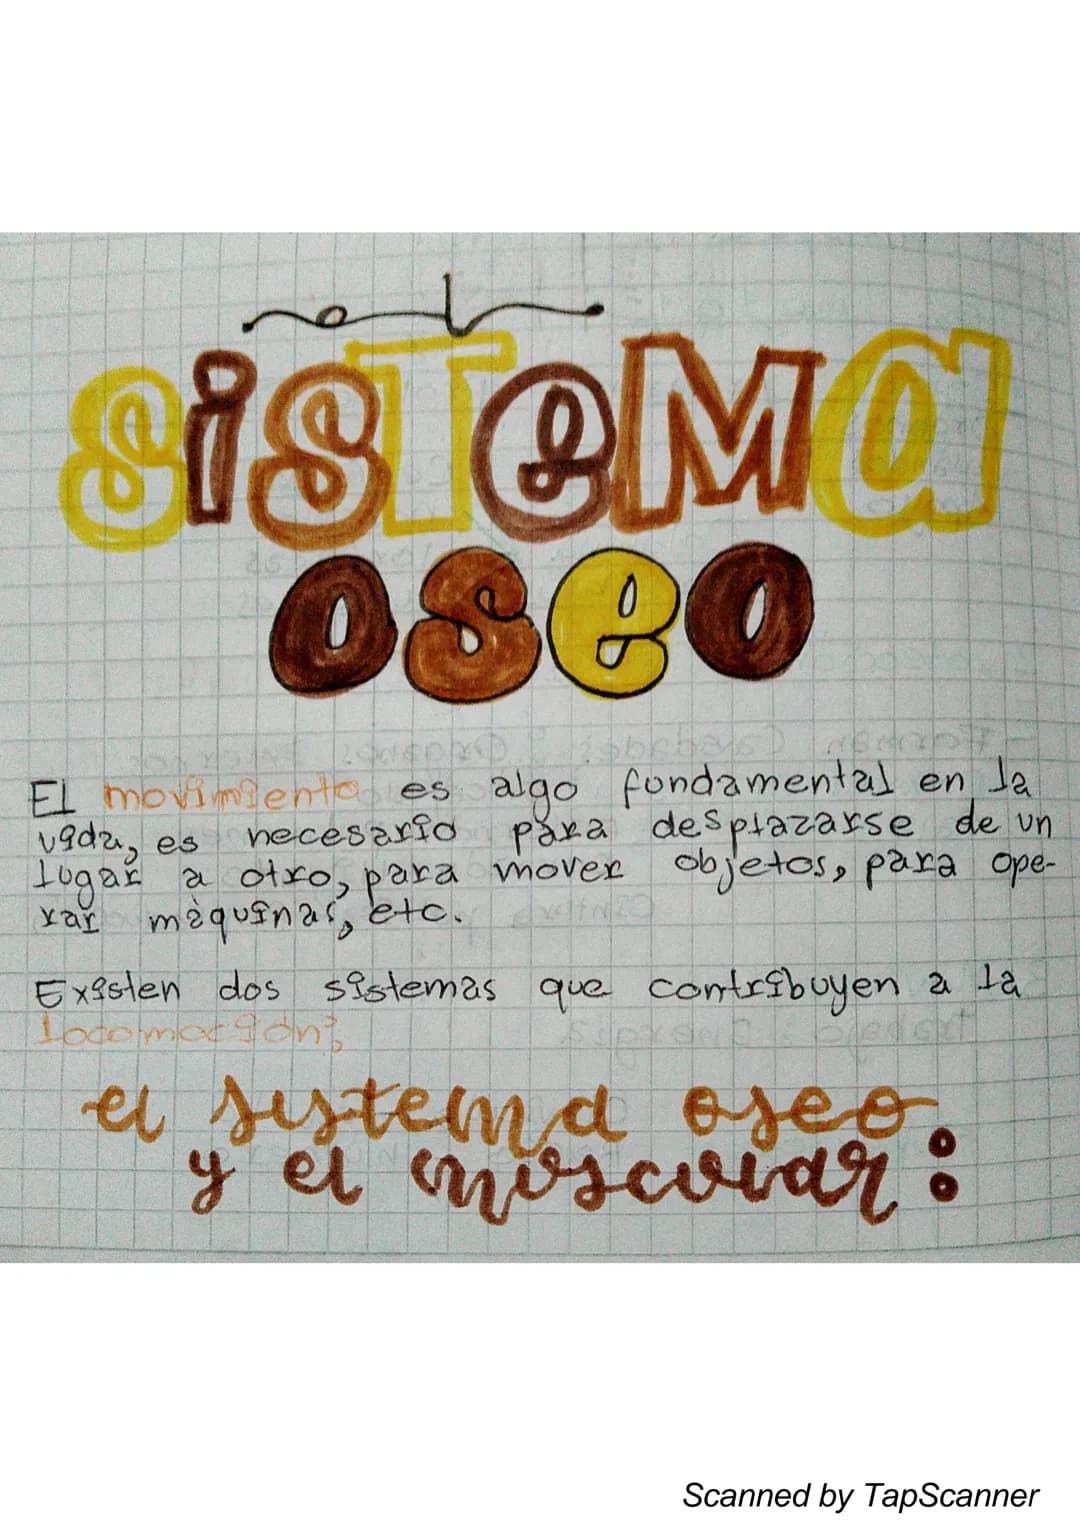 SiSTeMa
oseo
El movimiento es algo fundamental en la
vida, es necesario para desplazarse de un
lugar a otro, para mover objetos, para ope-
rar máquinas, etc.
Existen dos sistemas que contribuyen a la
locomoción;
el sistema oseo
y el muscular:
Scanned by TapScanner